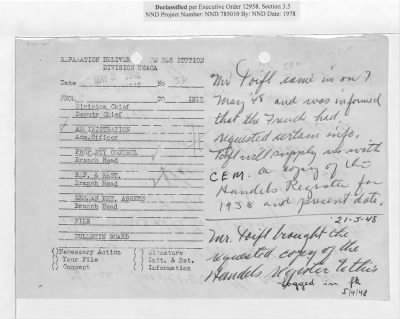 Declassified per Executive Order 12958, Section 3.5
NND Project Number: NND 785010 By: NND Date: 1978
REPARATION DELIVER
DIVISION USACA
Date MAY 3 1948 No 34
FROM TO INIT
Division Chief
Deputy Chief
ADMINISTRATION
Adm. Officer
PROPERTY CONTROL
Branch Head
REP. & REST.
Branch Head
GERMAN EXT. ASSETS
Branch Head
FILE
BULLETIN BOARD
( )Necessary Action ( ) Signature
( ) Your File ( ) Init. & Ret.
( ) Comment ( ) Information
CEM
Mr Toifl came in on 7
May '48 and was informed
that the French had
requested certain info.
Toifl will supply us with
CEM. a copy of the
Handels Register for
1938 and present date.
21-5-48
Mr. Toifl brought the
requested copy of the
Handels register to this
logged in
5/4/48